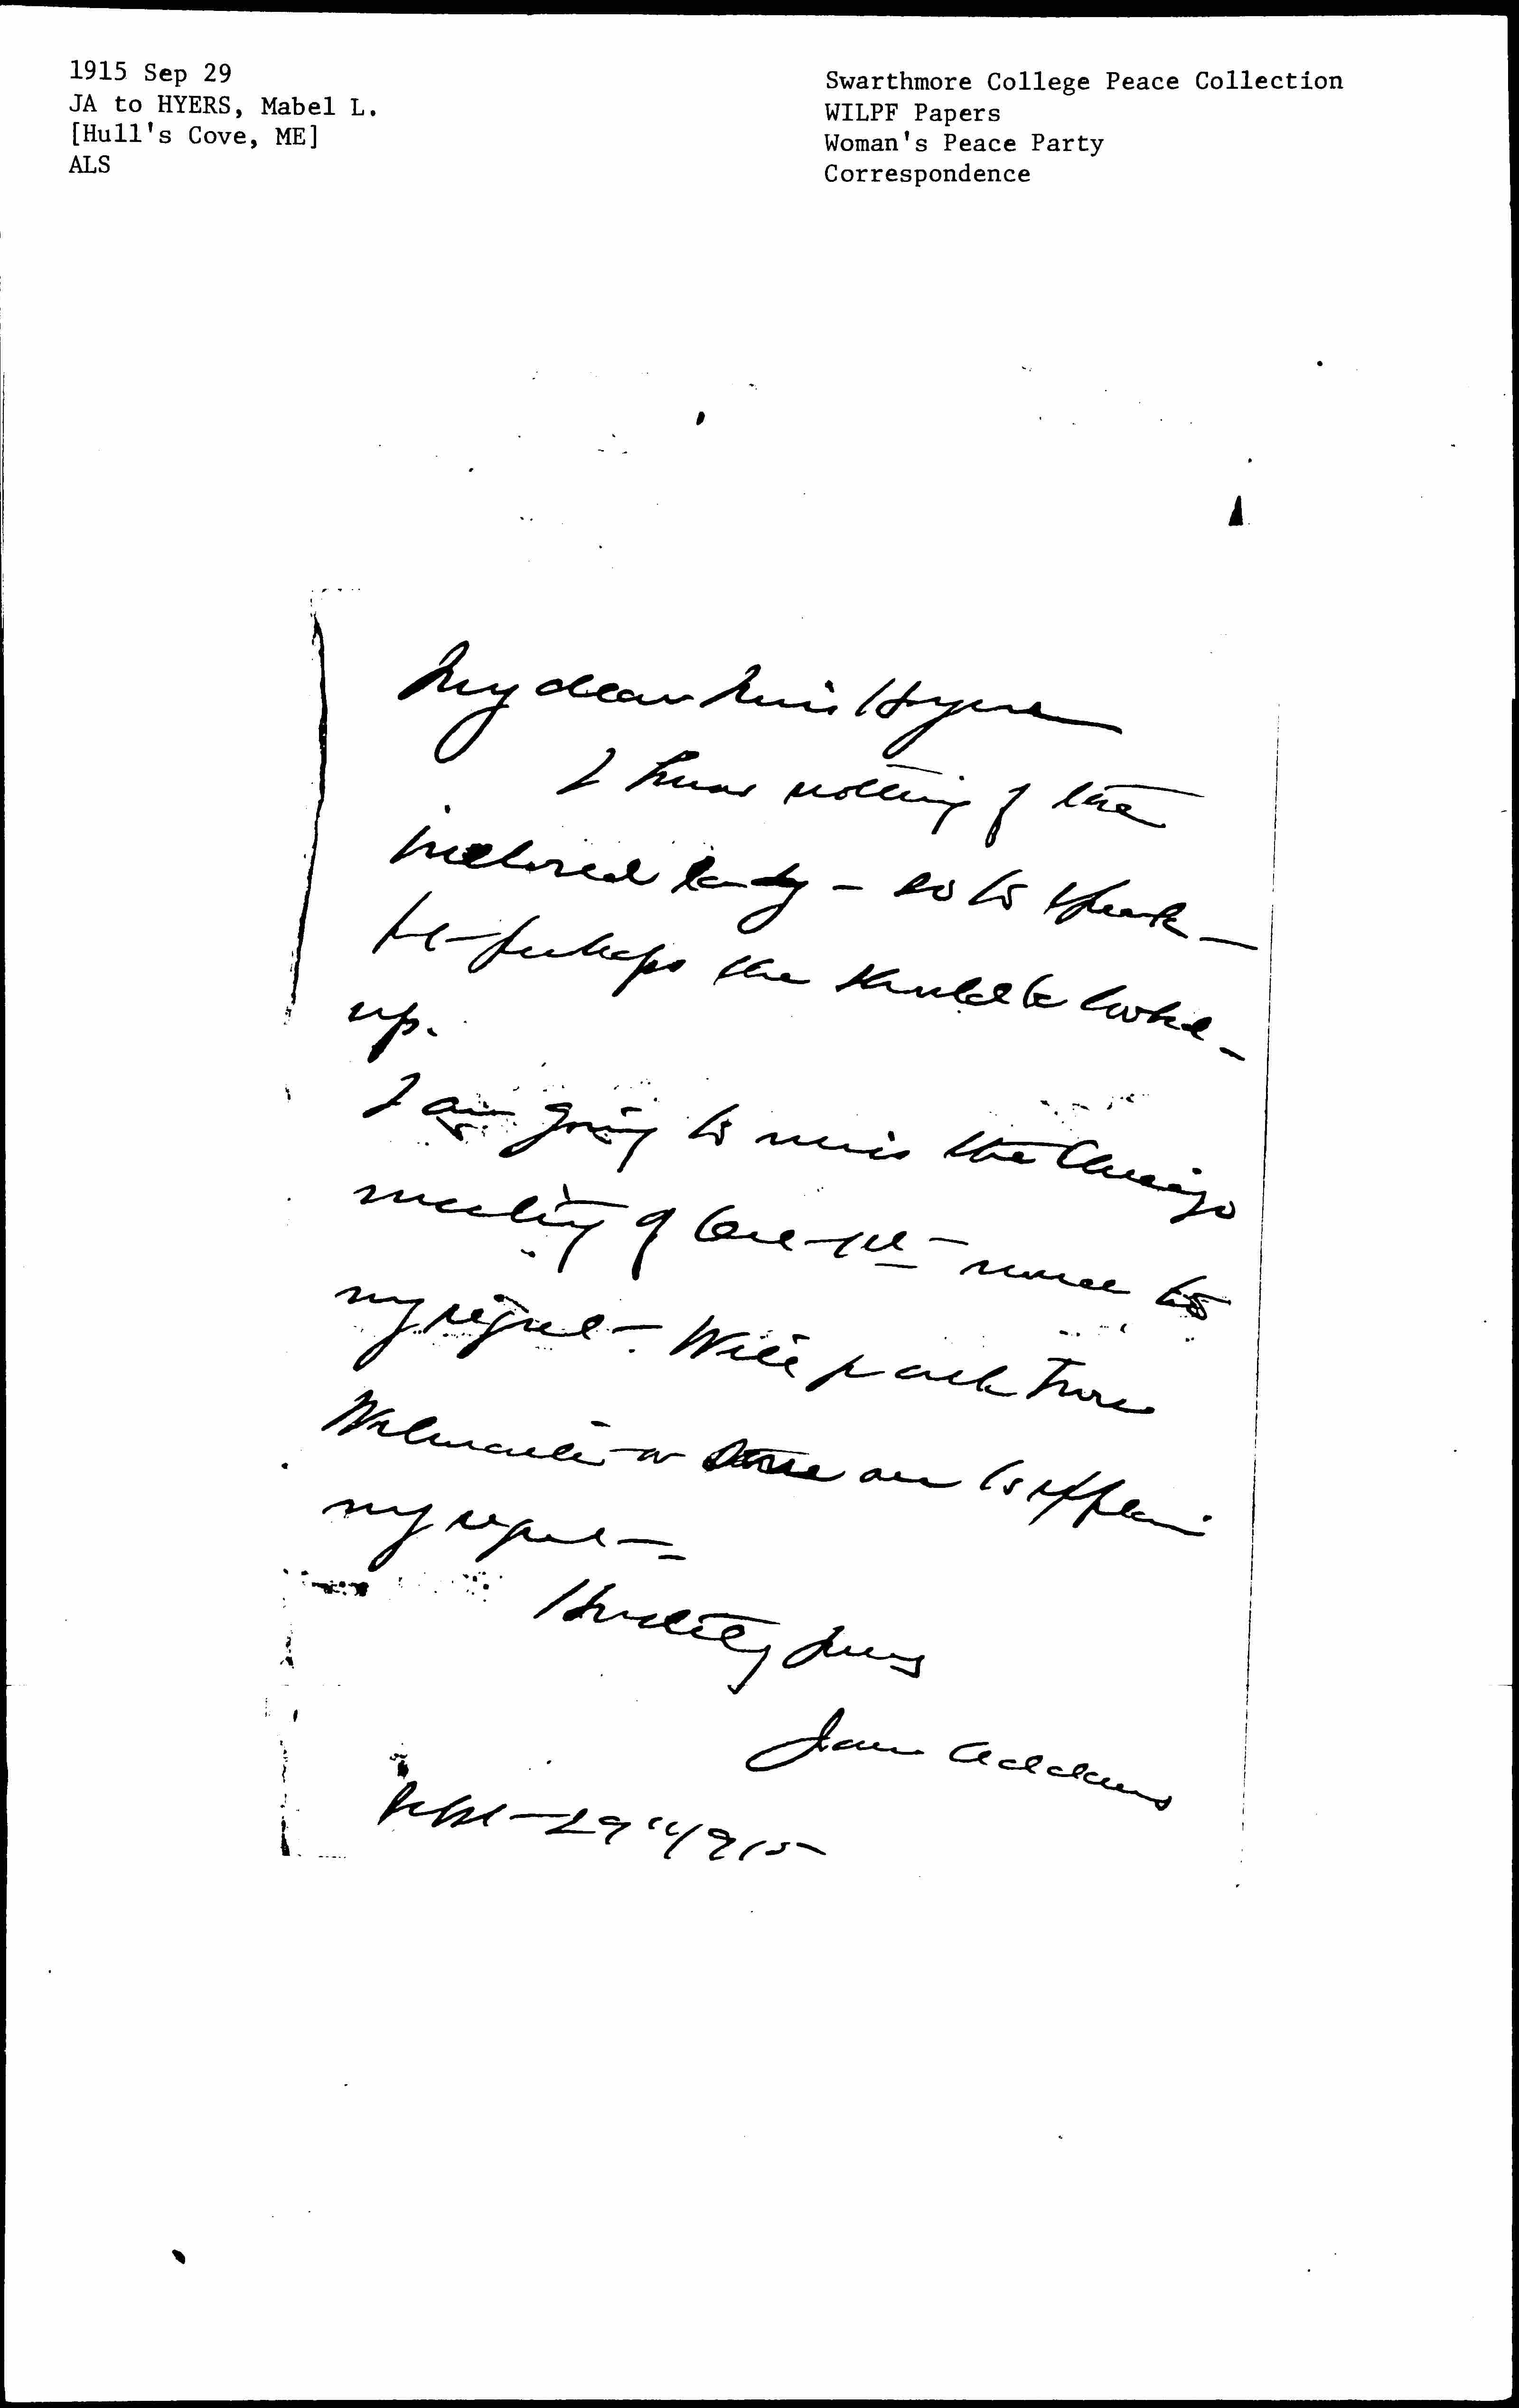 1915 Sep 29
JA to HYERS, Mabel L.
[Hull's Cove, ME]
ALS
Swarthmore College Peace Collection
WILPF Papers
Woman's Peace Party
Correspondence
My dear Miss Hyers
I know nothing of the
inclosed lady - so to speak -
but perhaps she should be looked
up.
I am going to miss the Chicago
meeting of Oct - 1st - much to
my regret - Will you ask Miss
or some one to explain
my regret -
Hastily yours
Jane Addams
Sept - 29" 1915